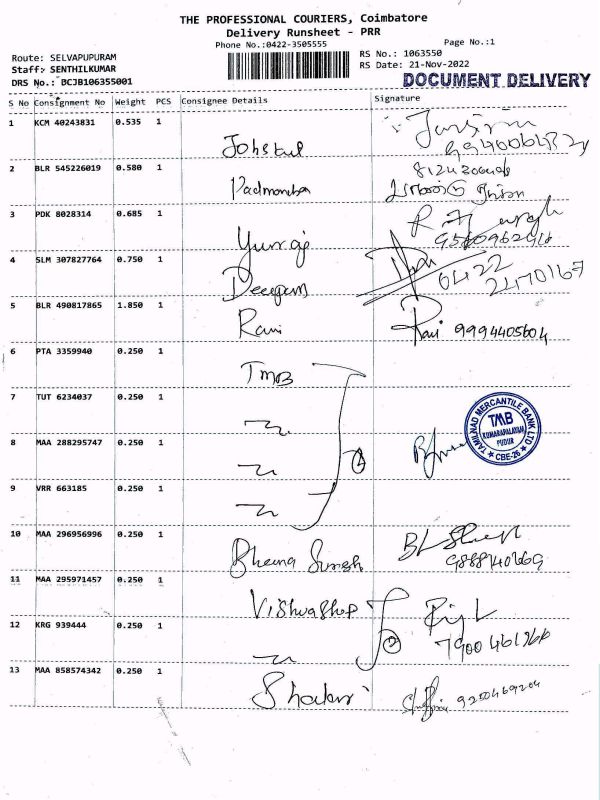 THE PROFESSIONAL COURIERS, Coimbatore
Delivery Runsheet - PRR
Phone No.:0422-3505555
Page No.:1
Route: SELVAPUPURAM
RS No.: 1063550
Staff: SENTHILKUMAR
RS Date: 21-Nov-2022
DRS No.: BCJB106355001
DOCUMENT DELIVERY
S No Consignment No Weight PCS Consignee Details Signature
1 KCM 40243831 0.535 1
2 BLR 545226019 0.580 1
3 PDK 8028314 0.685 1
4 SLM 307827764 0.750 1 Deepam 0422
5 BLR 490817865 1.850 1 Ravi Ravi 9994405604
6 PTA 3359940 0.250 1 TMB
7 TUT 6234037 0.250 1
TAMILNAD MERCANTILE BANK LTD
TMB
KUMARAPALAYAM
PUDUR
CBE-26
8 MAA 288295747 0.250 1 4
9 VRR 663185 0.250 1
10 MAA 296956996 0.250 1 Bheema Suresh
11 MAA 295971457 0.250 1 Vishwashop
12 KRG 939444 0.250 1 2
13 MAA 858574342 0.250 1